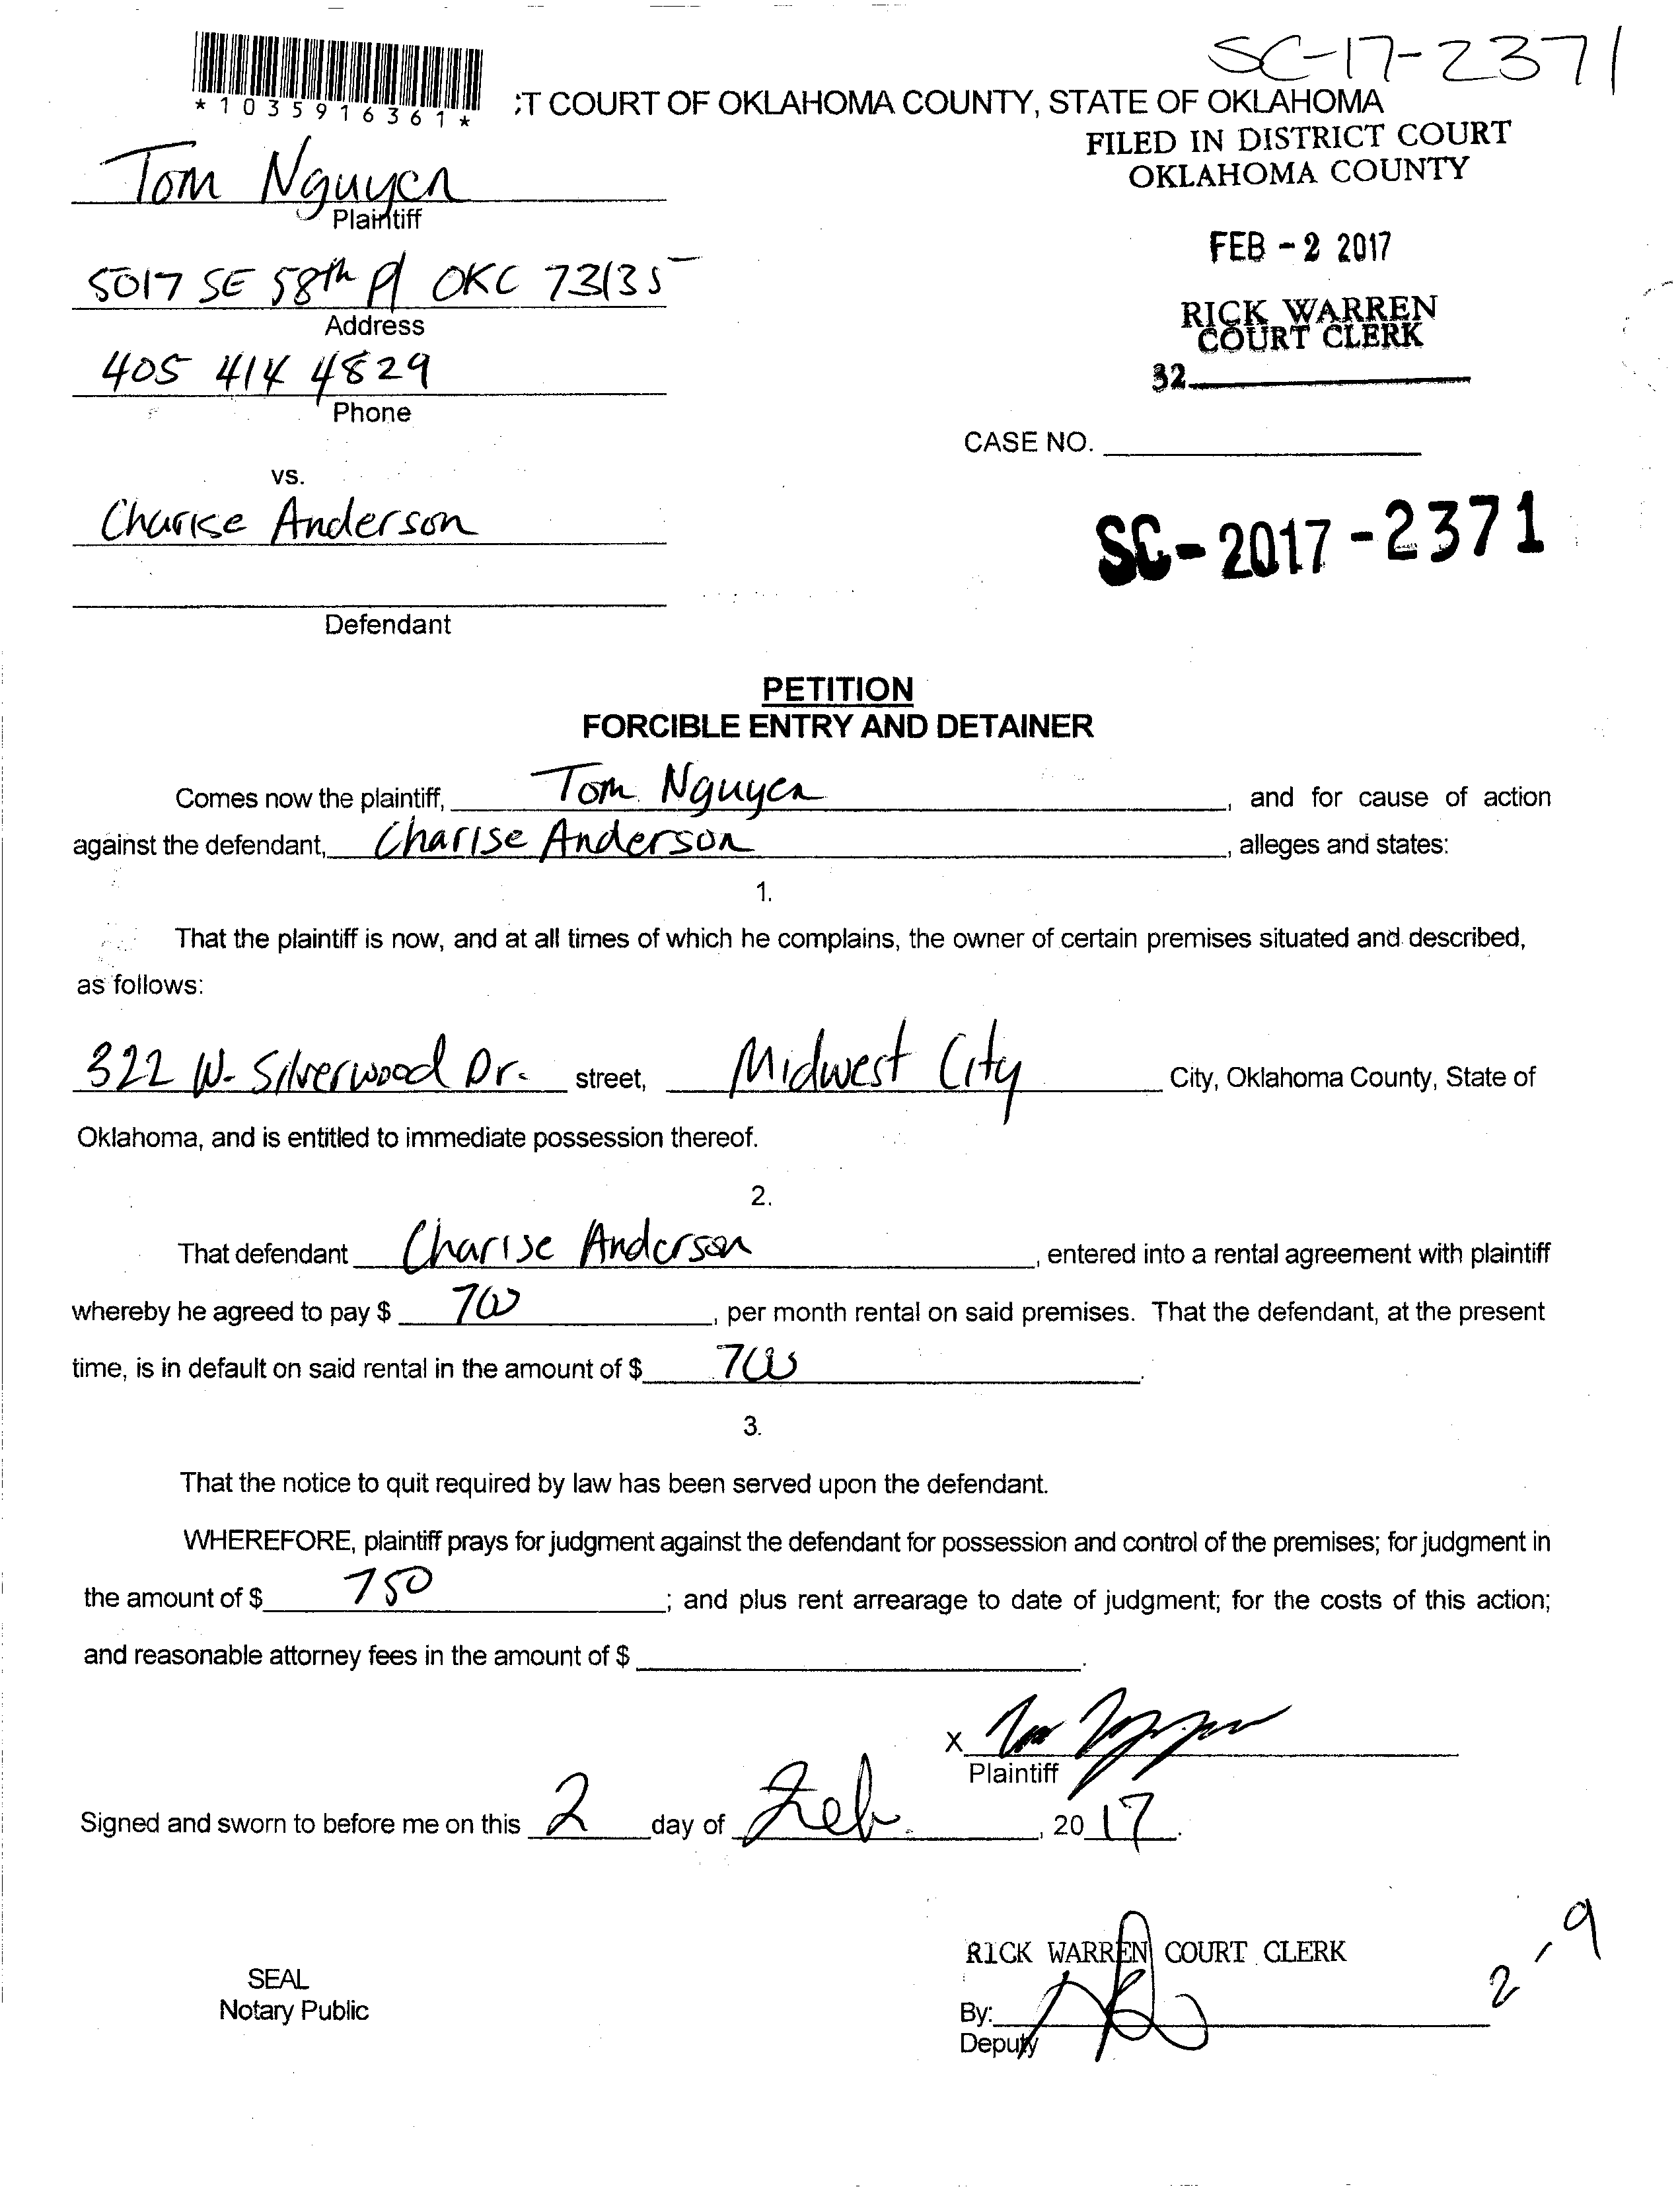 SC-17-2371
*1035916361*
T COURT OF OKLAHOMA COUNTY, STATE OF OKLAHOMA
FILED IN DISTRICT COURT
OKLAHOMA COUNTY
Tom Nguyen
Plaintiff
FEB - 2 2017
5017 SE 58th Pl OKC 73135
Address
RICK WARREN
COURT CLERK
405 414 4829
32
Phone
CASE NO.
vs.
Charise Anderson
SC-2017-2371
Defendant
PETITION
FORCIBLE ENTRY AND DETAINER
Comes now the plaintiff, Tom Nguyen, and for cause of action
against the defendant, Charise Anderson, alleges and states:
1.
That the plaintiff is now, and at all times of which he complains, the owner of certain premises situated and described,
as follows:
322 W. Silverwood Dr. street, Midwest City City, Oklahoma County, State of
Oklahoma, and is entitled to immediate possession thereof.
2.
That defendant Charise Anderson, entered into a rental agreement with plaintiff
whereby he agreed to pay $ 700, per month rental on said premises. That the defendant, at the present
time, is in default on said rental in the amount of $ 700.
3.
That the notice to quit required by law has been served upon the defendant.
WHEREFORE, plaintiff prays for judgment against the defendant for possession and control of the premises; for judgment in
the amount of $ 750; and plus rent arrearage to date of judgment; for the costs of this action;
and reasonable attorney fees in the amount of $ .
X
Plaintiff
Signed and sworn to before me on this 2 day of Feb., 2017.
RICK WARREN COURT CLERK
2-9
SEAL
Notary Public
By:
Deputy